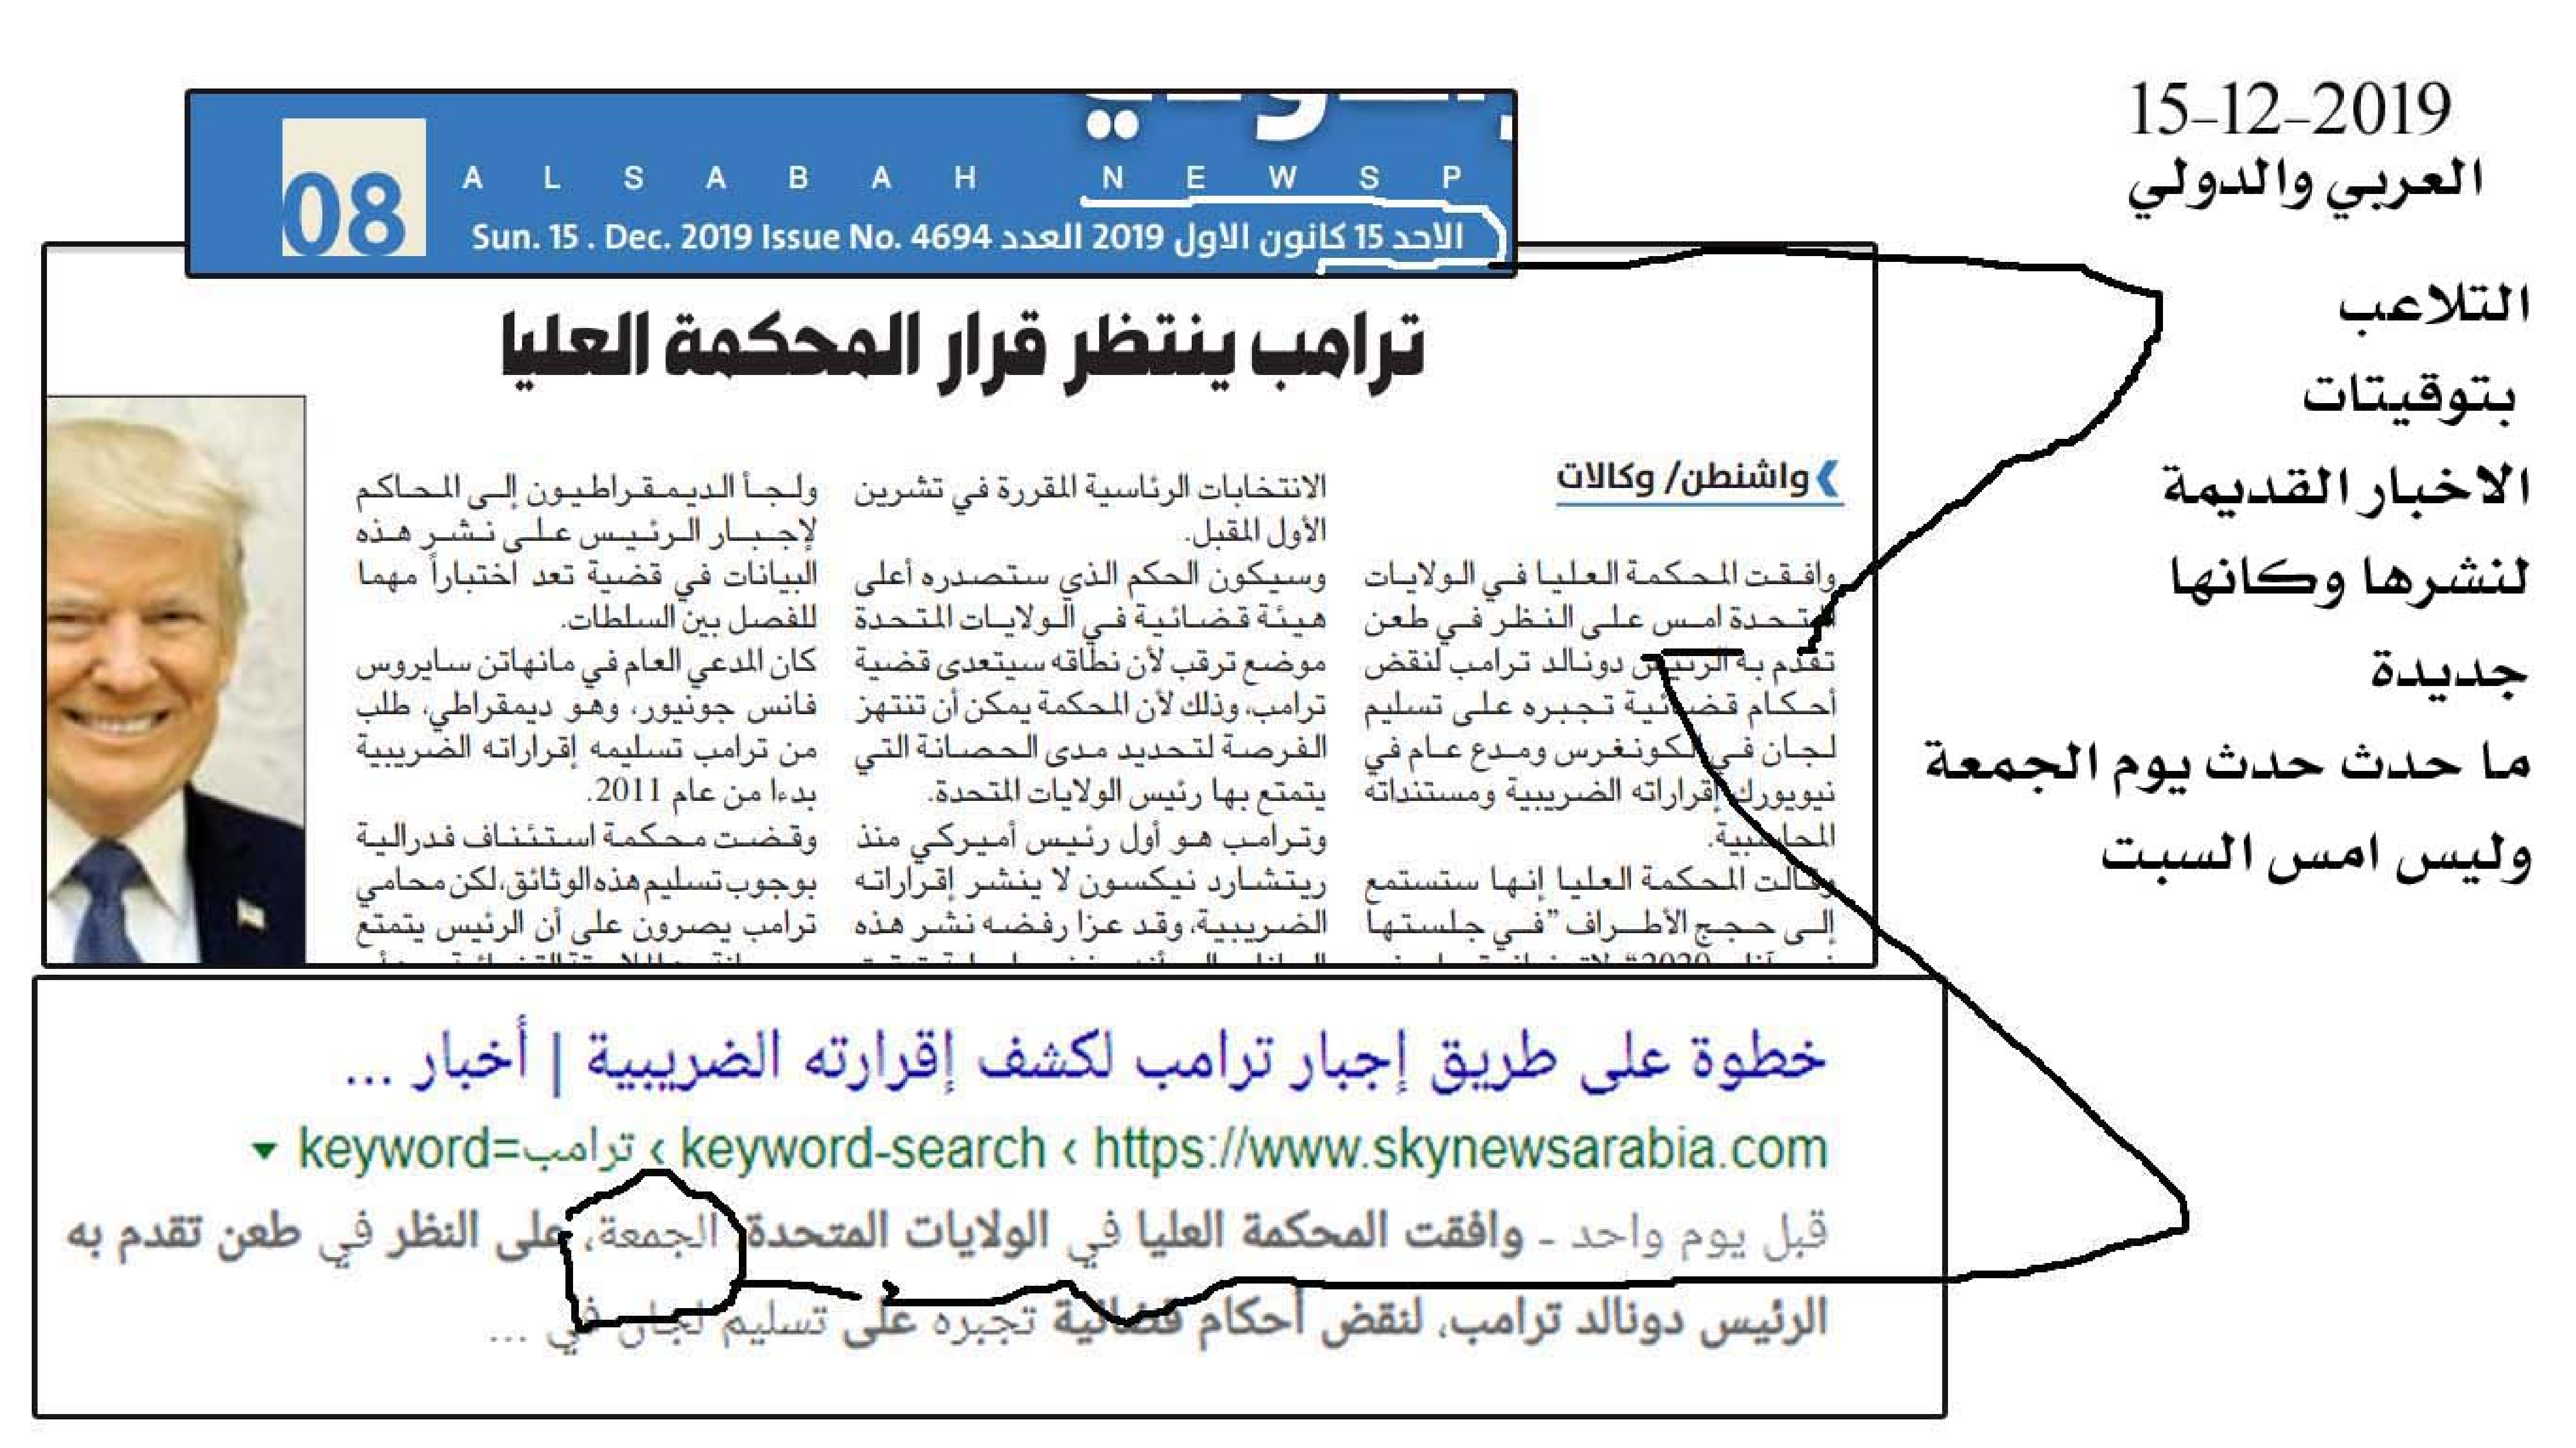 15-12-2019
العربي والدولي
التلاعب
بتوقيتات
الاخبار القديمة
لنشرها وكانها
جديدة
ما حدث حدث يوم الجمعة
وليس امس السبت
08
ALSABAH NEWSP
الاحد 15 كانون الاول 2019 العدد Sun. 15 . Dec. 2019 Issue No. 4694
ترامب ينتظر قرار المحكمة العليا
واشنطن/ وكالات
وافقت المحكمة العليا في الولايات
المتحدة امس على النظر في طعن
تقدم به الرئيس دونالد ترامب لنقض
أحكام قضائية تجبره على تسليم
لجان في الكونغرس ومدع عام في
نيويورك إقراراته الضريبية ومستنداته
المحاسبية.
وقالت المحكمة العليا إنها ستستمع
إلى حجج الأطراف "في جلستها
الانتخابات الرئاسية المقررة في تشرين
الأول المقبل.
وسيكون الحكم الذي ستصدره أعلى
هيئة قضائية في الولايات المتحدة
موضع ترقب لأن نطاقه سيتعدى قضية
ترامب، وذلك لأن المحكمة يمكن أن تنتهز
الفرصة لتحديد مدى الحصانة التي
يتمتع بها رئيس الولايات المتحدة.
وترامب هو أول رئيس أميركي منذ
ريتشارد نيكسون لا ينشر إقراراته
الضريبية، وقد عزا رفضه نشر هذه
ولجأ الديمقراطيون إلى المحاكم
لإجبار الرئيس على نشر هذه
البيانات في قضية تعد اختباراً مهما
للفصل بين السلطات.
كان المدعي العام في مانهاتن سايروس
فانس جونيور، وهو ديمقراطي، طلب
من ترامب تسليمه إقراراته الضريبية
بدءا من عام 2011.
وقضت محكمة استئناف فدرالية
بوجوب تسليم هذه الوثائق،لكن محامي
ترامب يصرون على أن الرئيس يتمتع
خطوة على طريق إجبار ترامب لكشف إقرارته الضريبية | أخبار ...
https://www.skynewsarabia.com › keyword-search › keyword=ترامب
قبل يوم واحد - وافقت المحكمة العليا في الولايات المتحدة، الجمعة، على النظر في طعن تقدم به
الرئيس دونالد ترامب، لنقض أحكام قضائية تجبره على تسليم لجان في ...